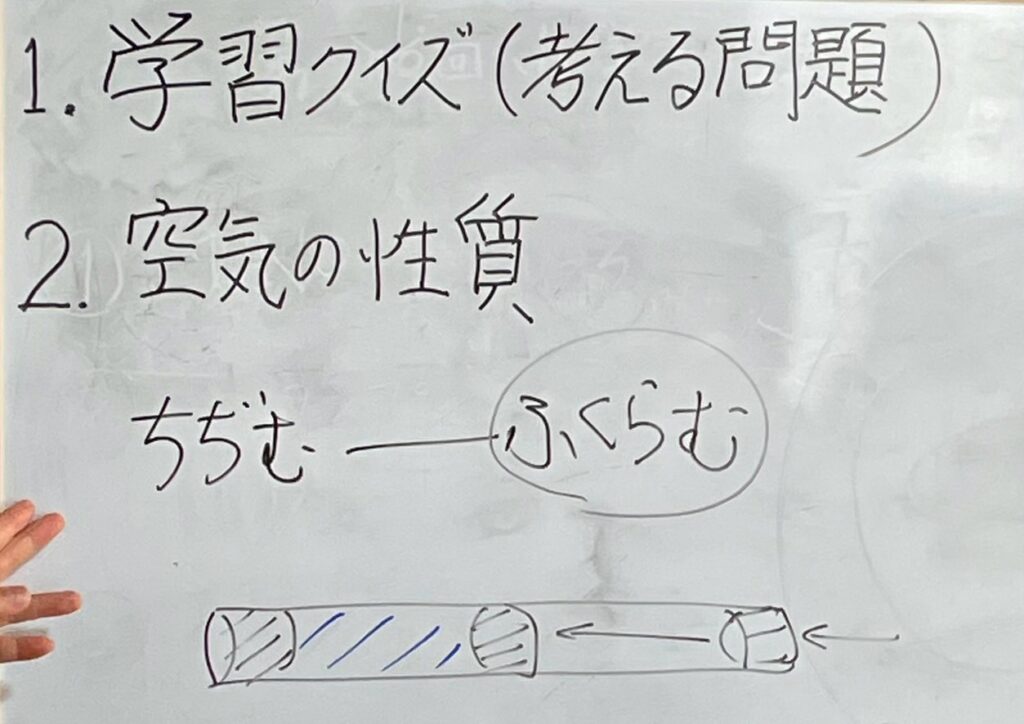 1. 学習クイズ(考える問題)
2. 空気の性質
ちぢむ — ふくらむ